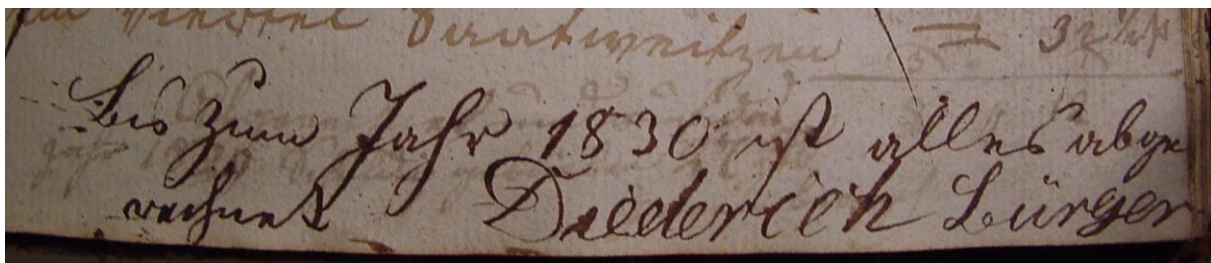 Viertel Saatweitzen = 32
Bis zum Jahr 1830 ist alles abge
rechnet Diederich Bürger